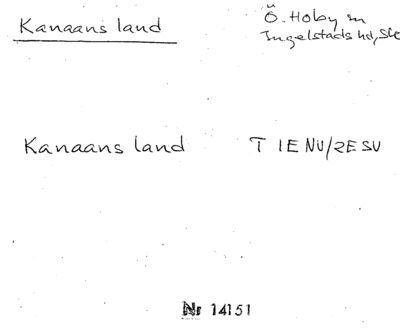 Kanaans land
Ö. Hoby sn
Ingelstads hd, Sk
Kanaans land T IENU/RESU
Nr 14151